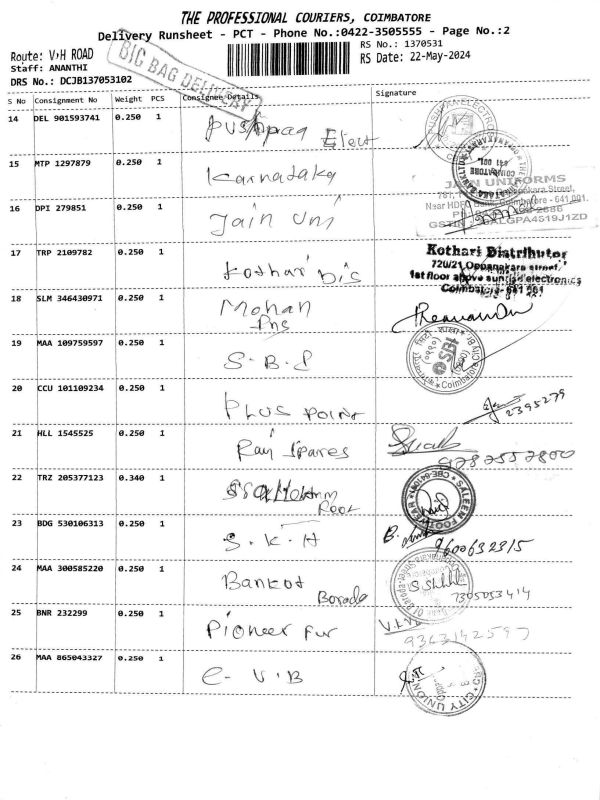 THE PROFESSIONAL COURIERS, COIMBATORE
Delivery Runsheet - PCT - Phone No.:0422-3505555 - Page No.:2
Route: V:H ROAD
RS No.: 1370531
Staff: ANANTHI
RS Date: 22-May-2024
DRS No.: DCJB137053102
BIG BAG DELIVERY
S No Consignment No Weight PCS Consignee Details Signature
14 DEL 901593741 0.250 1 Elect
15 MTP 1297879 0.250 1 Karnataka
16 DPI 279851 0.250 1 Jain Uni
JAIN UNIFORMS
Near HDFC Bank, Coimbatore - 641 001.
17 TRP 2109782 0.250 1 Kothari Dis
Kothari Distributor
720/21 Oppanakara street,
1st floor above sunrise electronics
Coimbatore- 641 001
18 SLM 346430971 0.250 1 Mohan
Pns
19 MAA 109759597 0.250 1 S.B.I
SBI
20 CCU 101109234 0.250 1 Plus point
2395279
21 HLL 1545525 0.250 1 Spares
22 TRZ 205377123 0.340 1
SALEEM FOOTWEAR
23 BDG 530106313 0.250 1 S.K.H
9600632315
24 MAA 300585220 0.250 1 Bankof
Borada
7305053414
25 BNR 232299 0.250 1 Pioneer Fur
9363142597
26 MAA 865043327 0.250 1 C-V.B
CITY UNION